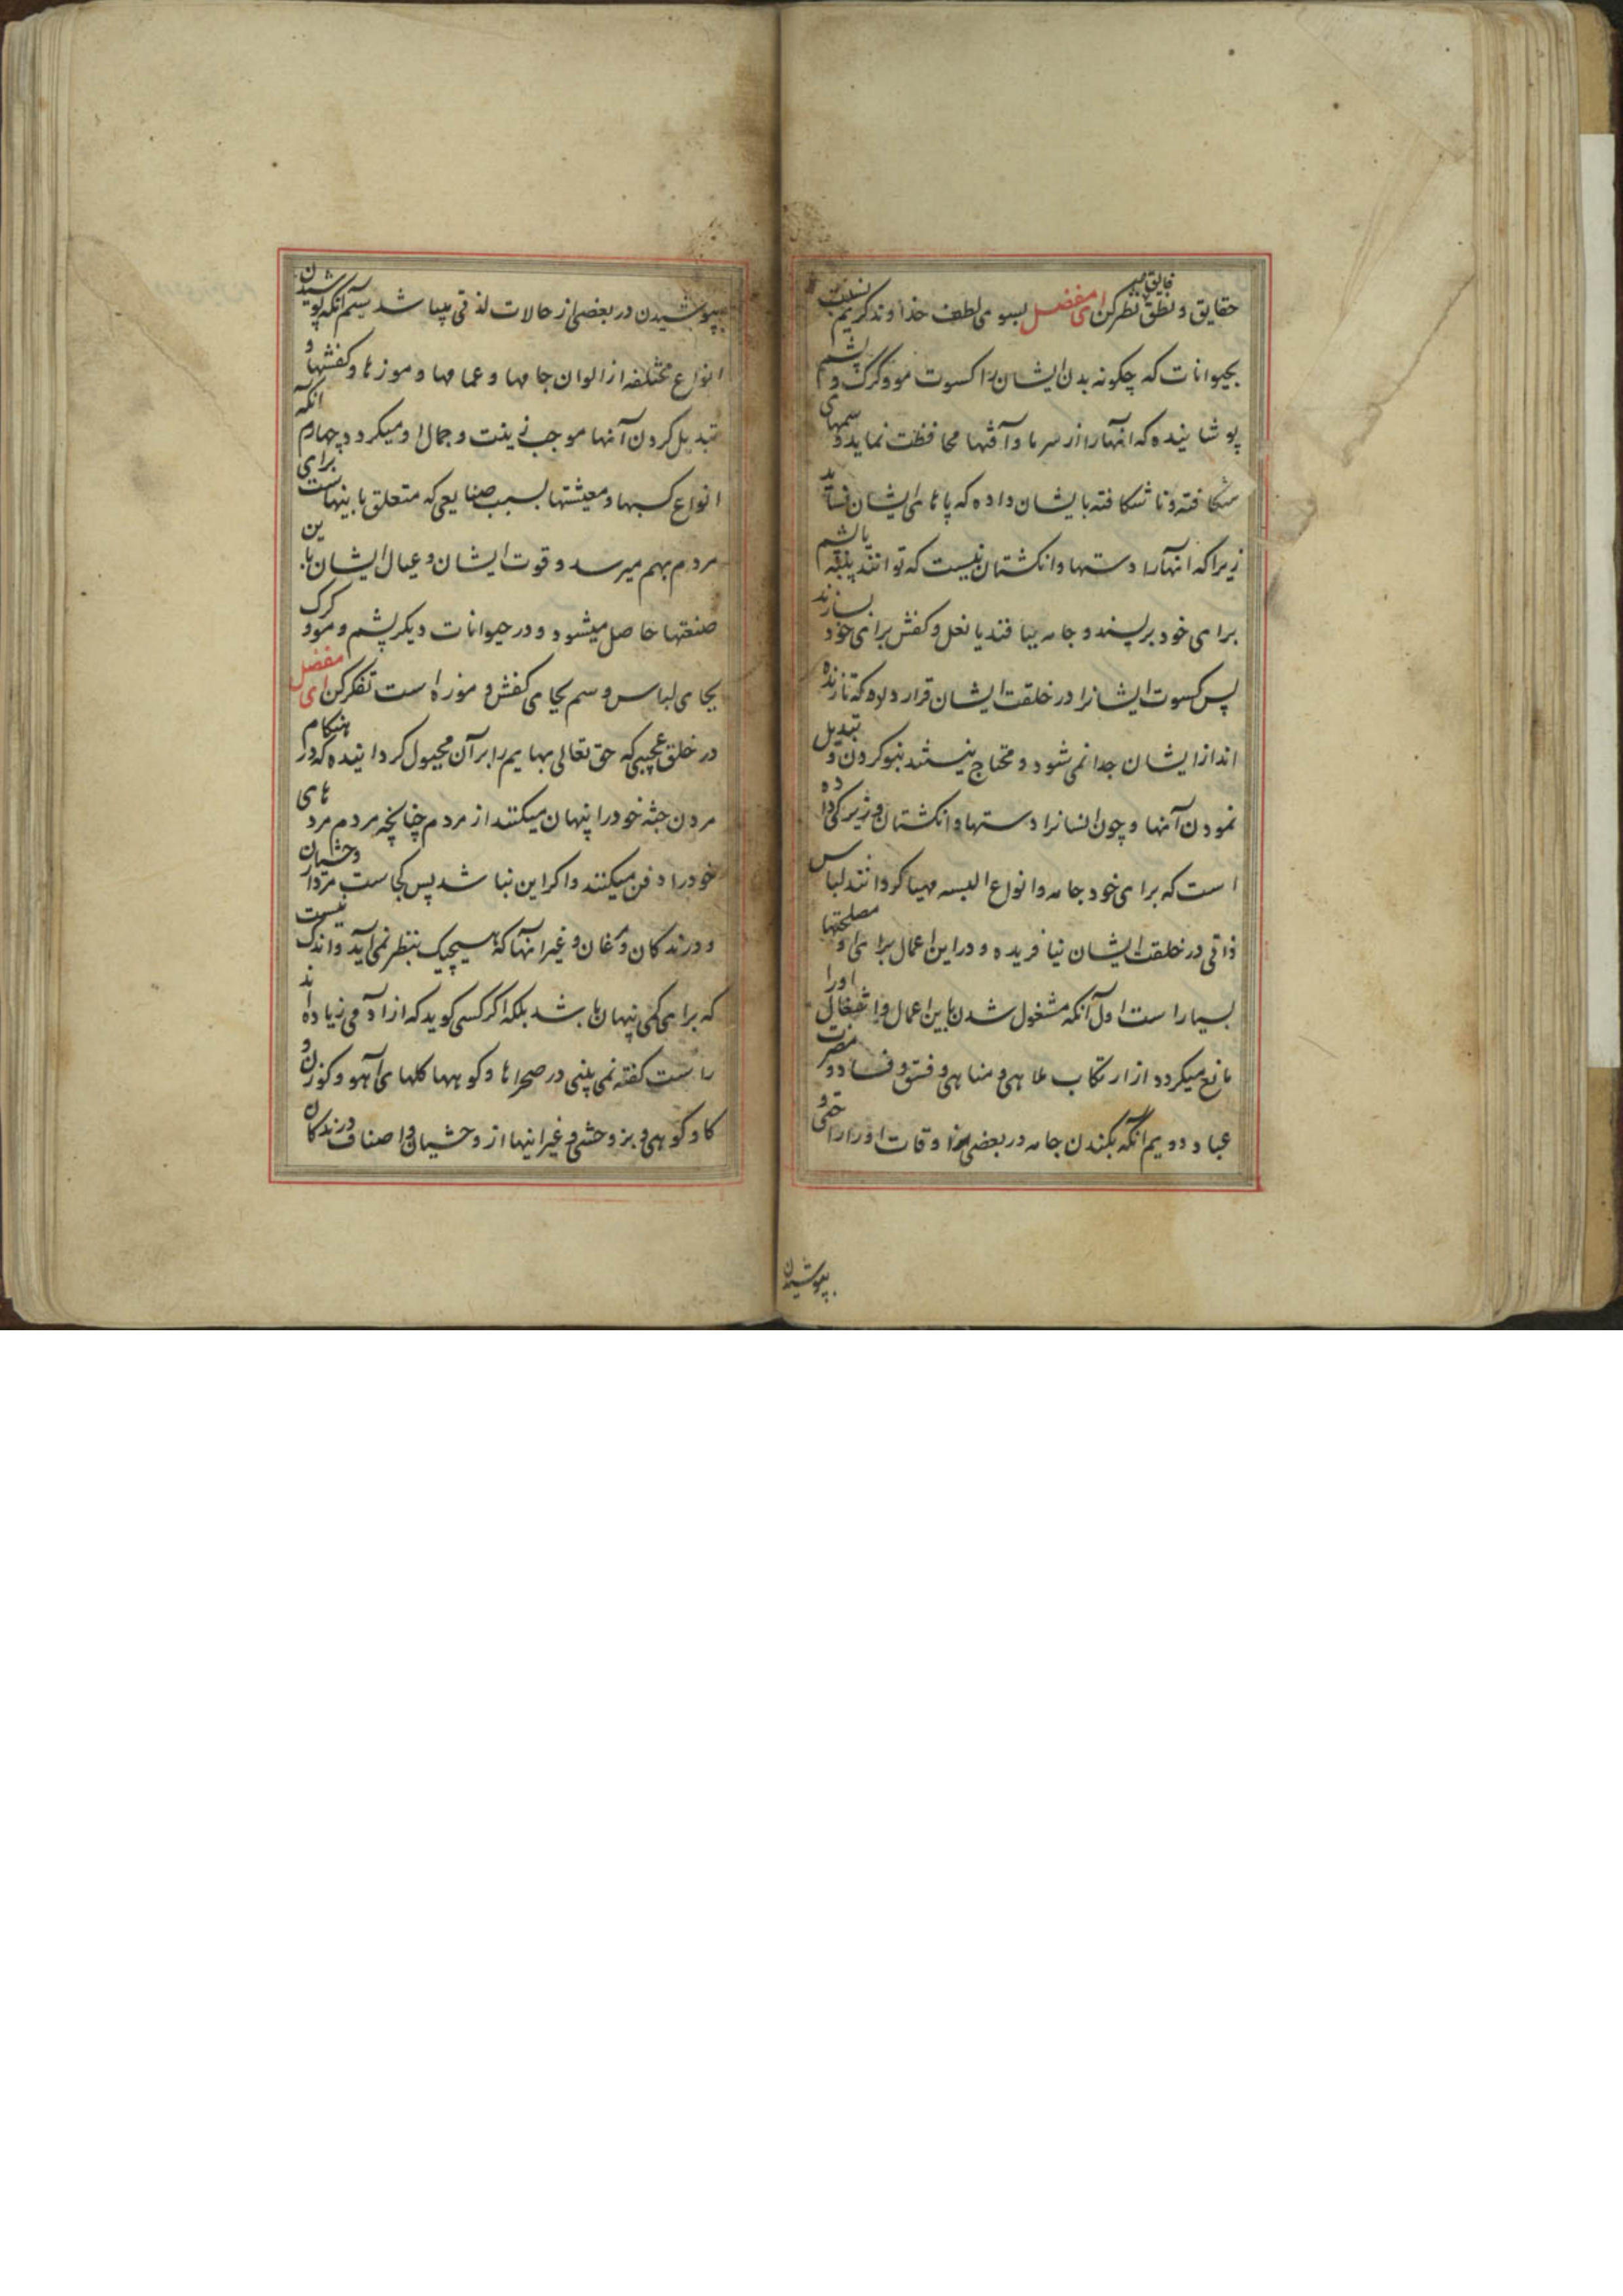 حقایق و نطق فایق میر نظر کن ای مفضل بسوی لطف خداوند کریم نسبت
بحیوانات که چگونه بدن ایشان را کسوت مو و کرک و پشم
پوشانیده که انها را از سرما و آفتها محافظت نماید و سمهای
شکافته و ناشکافته بایشان داده که پاهای ایشان نساید
زیرا که انها را دستها و انکشتان نیست که توانند پنبه یا پشم
برای خود بریسند و جامه ببافند یا نعل و کفش برای خود بسازند
پس کسوت ایشانرا در خلقت ایشان قرار داده که تا زنده
اند از ایشان جدا نمی شود و محتاج نیستند بنو کردن و تبدیل
نمودن آنها و چون انسانرا دستها و انکشتان و زیرکی داده
است که برای خود جامه و انواع البسه مهیا کردانند لباس
ذاتی در خلقت ایشان نیافریده و در این اعمال برای او مصلحتها
بسیار است اول آنکه مشغول شدن باین اعمال و اشغال اورا
مانع میکردد از ارتکاب ملاهی و مناهی و فسق و فساد و مضرت
عباد دویم انکه بکندن جامه در بعضی از اوقات او را راحتی و
بپوشیدن
بپوشیدن در بعضی از حالات لذتی میباشد سیم انکه پوشیدن
انواع مختلفه از الوان جامها و عمامها و موزها و کفشها و
تبدیل کردن آنها موجب زینت و جمال او میکردد چهارم انکه
انواع کسبها و معیشتها بسبب صنایعی که متعلق باینهاست برای
مردم بهم میرسد و قوت ایشان و عیال ایشان باین
صنعتها حاصل میشود و در حیوانات دیکر پشم و مو و کرک
بجای لباس و سم بجای کفش و موزه است تفکر کن ای مفضل
در خلق عجیبی که حق تعالی بهایم را بر آن مجبول کردانیده که در هنکام
مردن جثه خود را پنهان میکنند از مردم چنانچه مردم مردهای
خود را دفن میکنند و اکر این نباشد پس کجاست مردار وحشیان
و درندکان و مرغان و غیر انها که هیچیک بنظر نمی آید و اندک نیست
که برای کمی پنهان باشد بلکه اکر کسی کوید که از آدمی زیاده اند
راست کفته نمی بینی در صحراها و کوهها کلهای آهو و کوزن و
کاو کوهی و بز وحشی و غیر اینها از وحشیان و اصناف درندکان